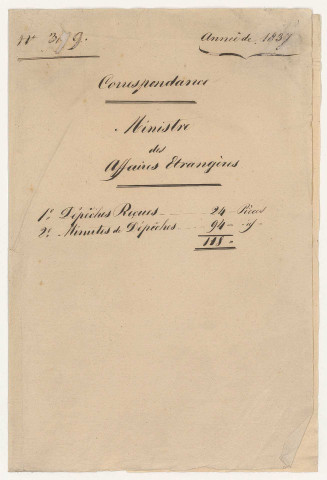 Année de 1837
Correspondance
Ministre
des
Affaires Etrangères
1º Dépêches Reçues 24 Pièces
2º Minutes de Dépêches 94 id
118